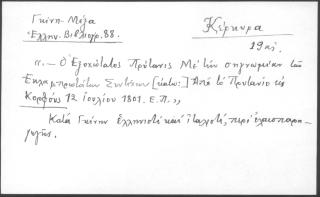 Γκίνη-Μέξα
Ἑλλην. Βιβλιογρ. 88.
Κέρκυρα
19 αἰ.
«.— Ὁ Ἐξοχώτατος Πρύτανις Μὲ τὴν σιγνωμίαν τῶν
Ἐκλαμπροτάτων Συνδίκων [κάτω:] Ἀπὸ τὸ Πρυτανῖο εἰς
Κορφοὺς 12 Ἰουλίου 1801. Ε.Π.,,
Κατὰ Γκίνην ἑλληνιστὶ καὶ ἰταλιστί, περὶ ἐλαιοπαρα-
γωγῆς.